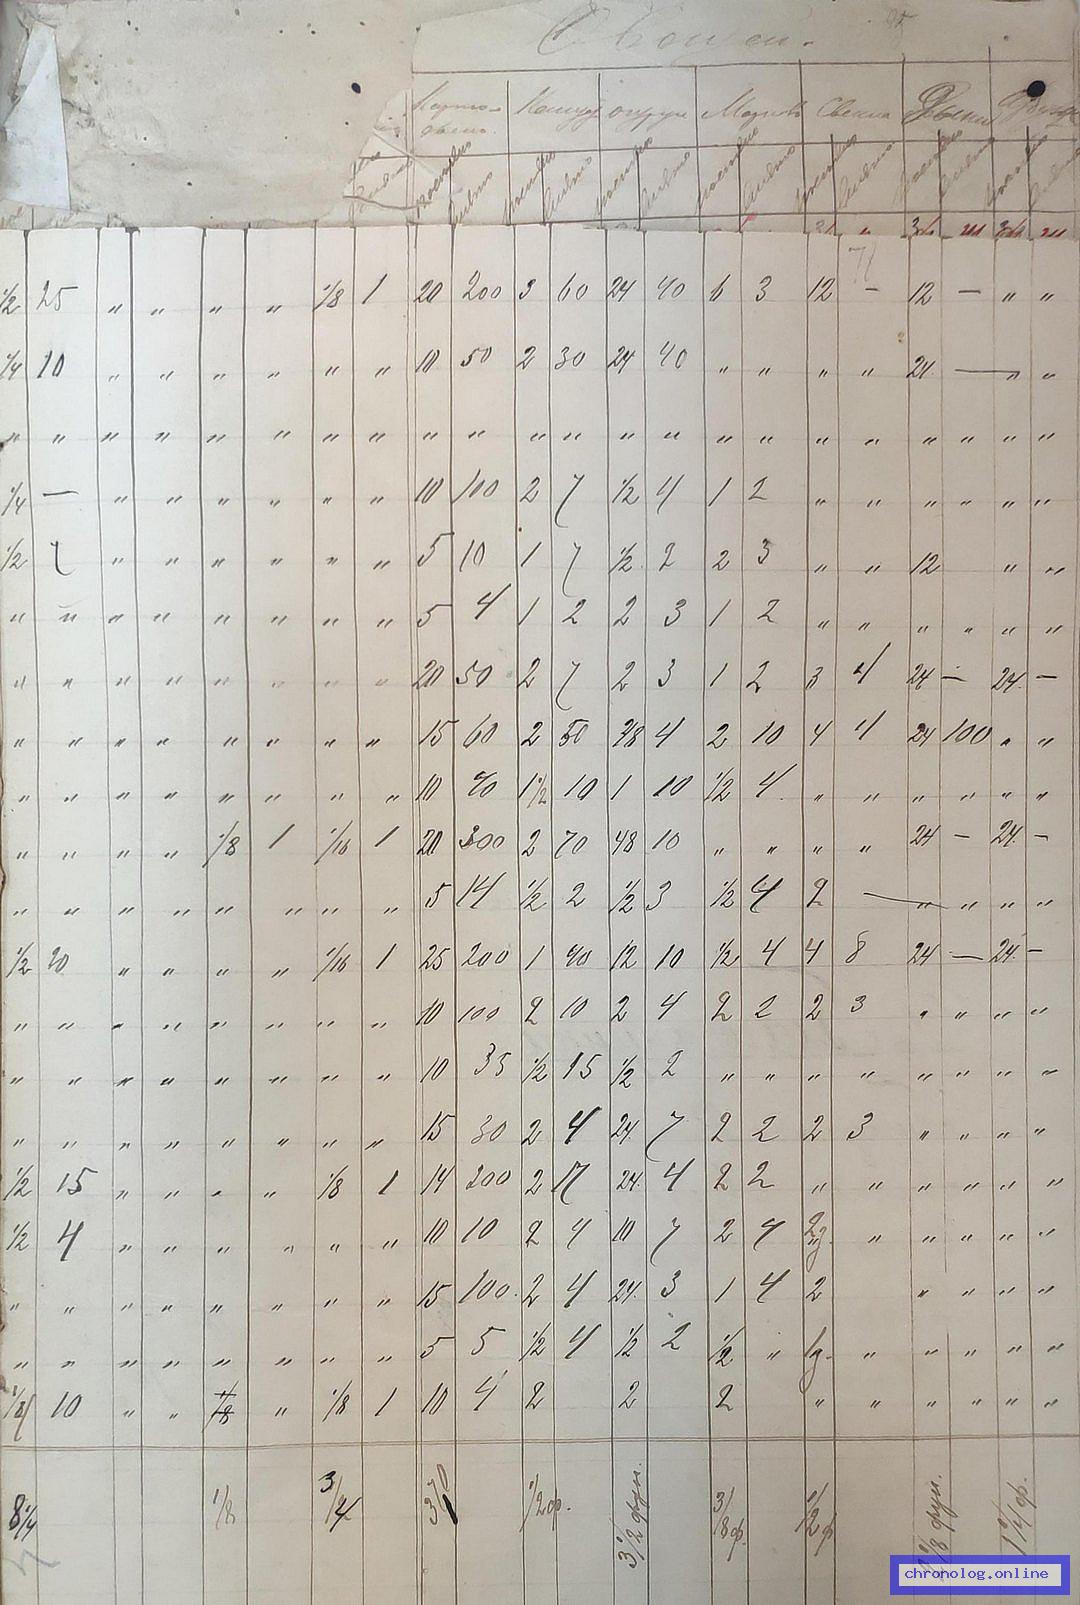 Овощи.
Карто- Капуст огурцы Морковь Свекла
посеяно снято посеяно снято посеяно снято посеяно снято посеяно снято посеяно снято посеяно снято
1/2 25 " " " " 1/8 1 20 200 3 60 24 40 6 3 12 – 12 – " "
1/4 10 " " " " " " 10 50 2 30 24 40 " " " " 24 — " "
" " " " " " " " " " " " " " " " " " " " " "
1/4 — " " " " " " 10 100 2 7 1/2 4 1 2 " " " " " "
1/2 7 " " " " " " 5 10 1 7 1/2 2 2 3 " " 12 " "
" " " " " " " " 5 4 1 2 2 3 1 2 " " " " " "
" " " " " " " " 20 50 2 7 2 3 1 2 3 4 24 – 24 –
" " " " " " " " 15 60 2 50 48 4 2 10 4 4 24 100 " "
" " " " " " " " 10 90 1 1/2 10 1 10 1/2 4 " " " " " "
" " " " 1/8 1 1/16 1 20 300 2 70 48 10 " " " " 24 – 24 –
" " " " " " " " 5 14 1/2 2 1/2 3 1/2 4 2 — " " " "
1/2 20 " " " " 1/16 1 25 200 1 90 12 10 1/2 4 4 8 24 — 24 –
" " " " " " " " 10 100 2 10 2 4 2 2 2 3 " " " "
" " " " " " " " 10 35 1/2 15 1/2 2 " " " " " " " "
" " " " " " " " 15 30 2 4 24 7 2 2 2 3 " " " "
1/2 15 " " " " 1/8 1 14 200 2 17 24 4 2 2 " " " " " "
1/2 4 " " " " " " 10 10 2 4 10 7 2 4 2 " " " " "
" " " " " " " " 15 100 2 4 24 3 1 4 2 " " " "
" " " " " " " " 5 5 1/2 4 1/2 2 1/2 " " " " " "
10 " " 1/8 " 1/8 1 10 4 2 2 2 " " " " " "
8 1/4 1/8 3/4 370 1/2 ф. 3 1/2 фун. 3/8 ф. 1/2 ф 1/8 фун. 1 1/4 ф.
chronolog.online